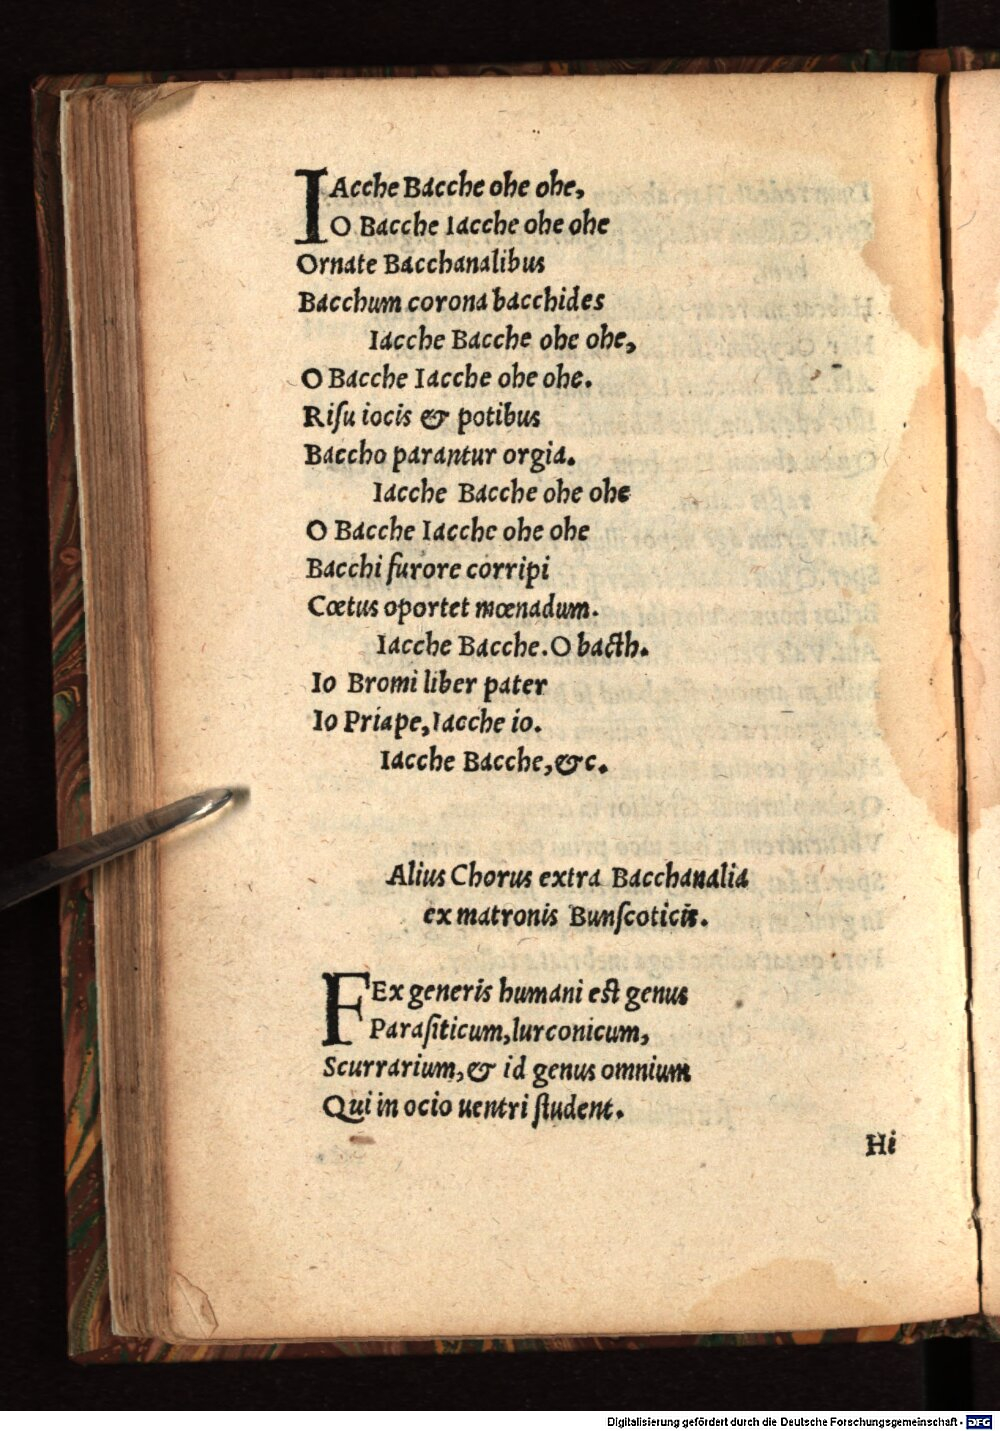 IAcche Bacche ohe ohe,
O Bacche Iacche ohe ohe
Ornate Bacchanalibus
Bacchum corona bacchides
Iacche Bacche ohe ohe,
O Bacche Iacche ohe ohe.
Risu iocis & potibus
Baccho parantur orgia.
Iacche Bacche ohe ohe
O Bacche Iacche ohe ohe
Bacchi furore corripi
Cœtus oportet mœnadum.
Iacche Bacche. O bacth.
Io Bromi liber pater
Io Priape, Iacche io.
Iacche Bacche, &c.
Alius Chorus extra Bacchanalia
ex matronis Bunscoticis.
FEx generis humani est genus
Parasiticum, lurconicum,
Scurrarium, & id genus omnium
Qui in ocio uentri student.
Hi
Digitalisierung gefördert durch die Deutsche Forschungsgemeinschaft - DFG